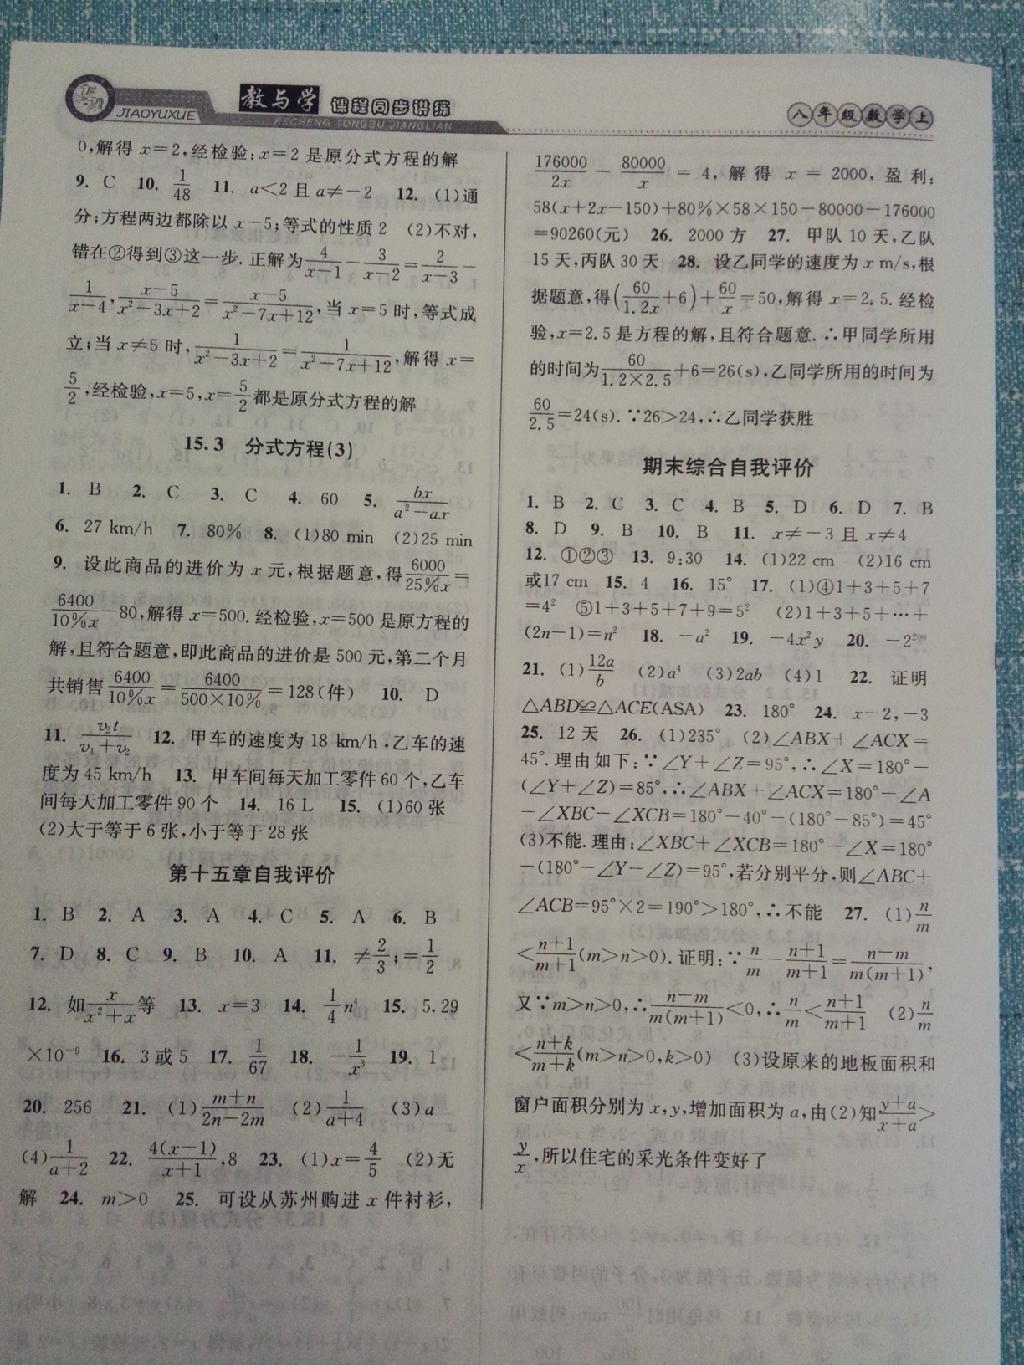 JIAOYUXUE 教与学 课程同步讲练
KECHENG TONGBU JIANGLIAN
八年级数学上
0,解得 x=2,经检验:x=2 是原分式方程的解
9. C 10. 1/48 11. a<2 且 a≠-2 12. (1)通
分;方程两边都除以 x-5;等式的性质 2 (2)不对,
错在②得到③这一步. 正解为 4/(x-1) - 3/(x-2) = 2/(x-3) -
1/(x-4), (x-5)/(x²-3x+2) = (x-5)/(x²-7x+12), 当 x=5 时,等式成
立;当 x≠5 时, 1/(x²-3x+2) = 1/(x²-7x+12), 解得 x=
5/2, 经检验,x=5,x=5/2 都是原分式方程的解
15.3 分式方程(3)
1. B 2. C 3. C 4. 60 5. bx/(a²-ax)
6. 27 km/h 7. 80% 8. (1)80 min (2)25 min
9. 设此商品的进价为 x 元,根据题意,得 6000/25%x =
6400/10%x - 80,解得 x=500. 经检验,x=500 是原方程的
解,且符合题意,即此商品的进价是 500 元,第二个月
共销售 6400/10%x = 6400/(500×10%) =128(件) 10. D
11. v₂t/(v₁+v₂) 12. 甲车的速度为 18 km/h,乙车的速
度为 45 km/h 13. 甲车间每天加工零件 60 个,乙车
间每天加工零件 90 个 14. 16 L 15. (1)60 张
(2)大于等于 6 张,小于等于 28 张
第十五章自我评价
1. B 2. A 3. A 4. C 5. A 6. B
7. D 8. C 9. B 10. A 11. ≠2/3;=1/2
12. 如 x/(x²+x) 等 13. x=3 14. 1/4 n⁴ 15. 5.29
×10⁻⁹ 16. 3 或 5 17. 1/67 18. -1/x³ 19. 1
20. 256 21. (1) (m+n)/(2n-2m) (2) 1/(a+4) (3)a
(4) 1/(a+2) 22. 4(x-1)/(x+1),8 23. (1)x=4/5 (2)无
解 24. m>0 25. 可设从苏州购进 x 件衬衫,
176000/2x - 80000/x = 4, 解得 x = 2000, 盈利:
58(x+2x-150)+80%×58×150-80000-176000
=90260(元) 26. 2000 方 27. 甲队 10 天,乙队
15 天,丙队 30 天 28. 设乙同学的速度为 x m/s,根
据题意,得(60/1.2x+6)+60/x=50,解得 x=2.5. 经检
验,x=2.5 是方程的解,且符合题意. ∴甲同学所用
的时间为 60/(1.2×2.5)+6=26(s),乙同学所用的时间为
60/2.5=24(s). ∵26>24,∴乙同学获胜
期末综合自我评价
1. B 2. C 3. C 4. B 5. D 6. D 7. B
8. D 9. B 10. B 11. x≠-3 且 x≠4
12. ①②③ 13. 9:30 14. (1)22 cm (2)16 cm
或17 cm 15. 4 16. 15° 17. (1)④1+3+5+7
=4² ⑤1+3+5+7+9=5² (2)1+3+5+…+
(2n-1)=n² 18. -a² 19. -4x²y 20.
21. (1) 12a/b (2)a⁴ (3)2ab (4)1 22. 证明
△ABD≌△ACE(ASA) 23. 180° 24. x-2,-3
25. 12 天 26. (1)235° (2)∠ABX+∠ACX=
45°. 理由如下:∵∠Y+∠Z=95°,∴∠X=180°-
(∠Y+∠Z)=85°,∴∠ABX+∠ACX=180°-∠A
-∠XBC-∠XCB=180°-40°-(180°-85°)=45°
(3)不能. 理由:∠XBC+∠XCB=180°-∠X=180°
-(180°-∠Y-∠Z)=95°,若分别平分,则∠ABC+
∠ACB=95°×2=190°>180°,∴不能 27. (1) n/m
<(n+1)/(m+1)(m>n>0). 证明:∵n/m - (n+1)/(m+1) = (n-m)/(m(m+1)),
又∵m>n>0,∴(n-m)/(m(m+1))<0,∴n/m<(n+1)/(m+1) (2) n/m
<(n+k)/(m+k)(m>n>0,k>0) (3)设原来的地板面积和
窗户面积分别为 x,y,增加面积为 a,由(2)知 (y+a)/(x+a)>
y/x,所以住宅的采光条件变好了